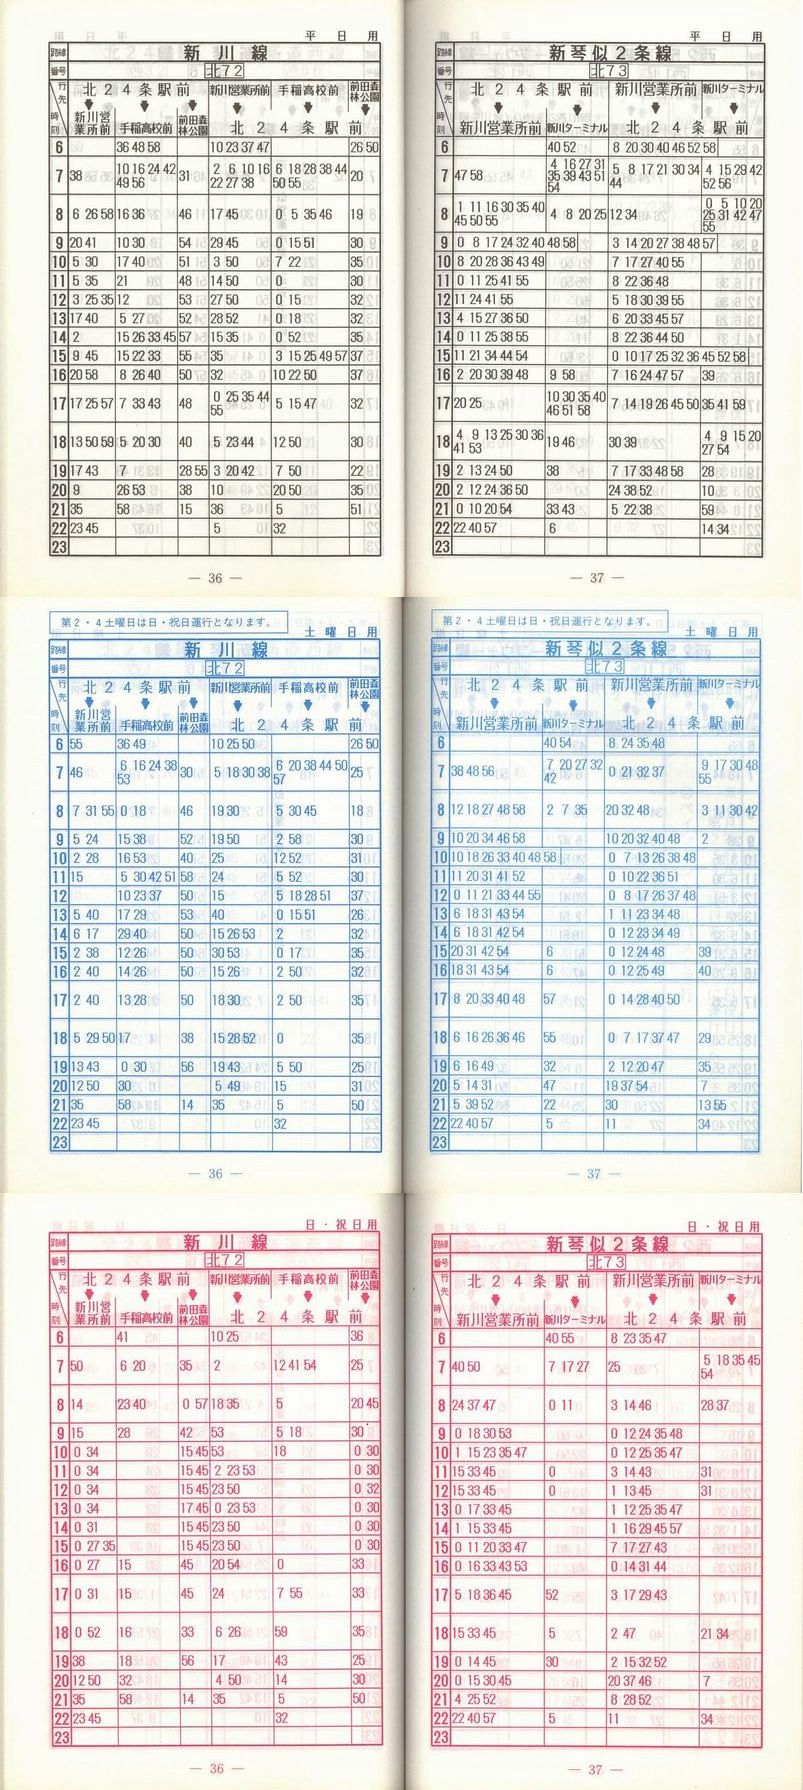 平日用
路線 新川線
番号 北72
行先 北24条駅前 新川営業所前 手稲高校前 前田森林公園
時刻 新川営業所前 手稲高校前 前田森林公園 北24条駅前
6 36 48 58 10 23 37 47 26 50
7 38 10 16 24 42 49 56 31 2 6 10 16 22 27 38 6 18 28 38 44 50 55 20
8 6 26 58 16 36 46 17 45 0 5 35 46 19
9 20 41 10 30 54 29 45 0 15 51 30
10 5 30 17 40 51 3 50 7 22 35
11 5 35 21 48 14 50 0 30
12 3 25 35 12 53 27 50 0 15 32
13 17 40 5 27 52 28 52 0 18 32
14 2 15 26 33 45 57 15 35 0 52 35
15 9 45 15 22 33 55 35 3 15 25 49 57 37
16 20 58 8 26 40 50 32 10 22 50 37
17 17 25 57 7 33 43 48 0 25 35 44 55 5 15 47 32
18 13 50 59 5 20 30 40 5 23 44 12 50 30
19 17 43 7 28 55 3 20 42 7 50 22
20 9 26 53 38 10 20 50 35
21 35 58 15 36 5 51
22 23 45 5 32
23
— 36 —
平日用
路線 新琴似2条線
番号 北73
行先 北24条駅前 新川営業所前 新川ターミナル
時刻 新川営業所前 新川ターミナル 北24条駅前
6 40 52 8 20 30 40 46 52 58
7 47 58 4 16 27 31 35 39 43 51 54 5 8 17 21 30 34 44 4 15 29 42 52 56
8 1 11 16 30 35 40 45 50 55 4 8 20 25 12 34 0 5 10 20 25 31 42 47 55
9 0 8 17 24 32 40 48 58 3 14 20 27 38 48 57
10 8 20 28 36 43 49 7 17 27 40 55
11 0 11 25 41 55 8 22 36 48
12 11 24 41 55 5 18 30 39 55
13 4 15 27 36 50 6 20 33 45 57
14 0 11 25 38 55 8 22 36 44 50
15 11 21 34 44 54 0 10 17 25 32 36 45 52 58
16 2 20 30 39 48 9 58 7 16 24 47 57 39
17 20 25 10 30 35 40 46 51 58 7 14 19 26 45 50 35 41 59
18 4 9 13 25 30 36 41 53 19 46 30 39 4 9 15 20 27 54
19 2 13 24 50 38 7 17 33 48 58 28
20 2 12 24 36 50 24 38 52 10
21 0 10 20 54 33 43 5 22 38 59
22 22 40 57 6 14 34
23
— 37 —
第2・4土曜日は日・祝日運行となります。
土曜日用
路線 新川線
番号 北72
行先 北24条駅前 新川営業所前 手稲高校前 前田森林公園
時刻 新川営業所前 手稲高校前 前田森林公園 北24条駅前
6 55 36 49 10 25 50 26 50
7 46 6 16 24 38 53 30 5 18 30 38 6 20 38 44 50 57 25
8 7 31 55 0 18 46 19 30 5 30 45 18
9 5 24 15 38 52 19 50 2 58 30
10 2 28 16 53 40 25 12 52 31
11 15 5 30 42 51 58 24 5 52 30
12 10 23 37 50 15 5 18 28 51 37
13 5 40 17 29 53 40 0 15 51 26
14 6 17 29 40 50 15 26 53 2 32
15 2 38 12 26 50 30 53 0 17 35
16 2 40 14 26 50 15 26 2 50 32
17 2 40 13 28 50 18 30 2 50 35
18 5 29 50 17 38 15 28 52 0 35
19 13 43 0 30 56 19 43 5 50 25
20 12 50 30 5 49 15 31
21 35 58 14 35 5 50
22 23 45 32
23
— 36 —
第2・4土曜日は日・祝日運行となります。
土曜日用
路線 新琴似2条線
番号 北73
行先 北24条駅前 新川営業所前 新川ターミナル
時刻 新川営業所前 新川ターミナル 北24条駅前
6 40 54 8 24 35 48
7 38 48 56 7 20 27 32 42 0 21 32 37 9 17 30 48 55
8 12 18 27 48 58 2 7 35 20 32 48 3 11 30 42
9 10 20 34 46 58 10 20 32 40 48 2
10 10 18 26 33 40 48 58 0 7 13 26 38 48
11 11 20 31 41 52 0 10 22 36 51
12 0 11 21 33 44 55 0 8 17 26 37 48
13 6 18 31 43 54 1 11 23 34 48
14 6 18 31 42 54 0 12 23 34 49
15 20 31 42 54 6 0 12 24 48 39
16 18 31 43 54 6 0 12 25 49 40
17 8 20 33 40 48 57 0 14 28 40 50
18 6 16 26 36 46 55 0 7 17 37 47 29
19 6 16 49 32 2 12 20 47 35
20 5 14 31 47 19 37 54 7
21 5 39 52 22 30 13 55
22 22 40 57 5 11 34
23
— 37 —
日・祝日用
路線 新川線
番号 北72
行先 北24条駅前 新川営業所前 手稲高校前 前田森林公園
時刻 新川営業所前 手稲高校前 前田森林公園 北24条駅前
6 41 10 25 36
7 50 6 20 35 2 12 41 54 25
8 14 23 40 0 57 18 35 5 20 45
9 15 28 42 53 5 18 30
10 0 34 15 45 53 18 0 30
11 0 34 15 45 2 23 53 0 30
12 0 34 15 45 23 50 0 32
13 0 34 17 45 0 23 53 0 30
14 0 31 15 45 23 50 0 30
15 0 27 35 15 45 23 50 0 30
16 0 27 15 45 20 54 0 33
17 0 31 15 45 24 7 55 33
18 0 52 16 33 6 26 59 35
19 38 18 56 17 43 25
20 12 50 32 4 50 14 30
21 35 58 14 35 5 50
22 23 45 32
23
— 36 —
日・祝日用
路線 新琴似2条線
番号 北73
行先 北24条駅前 新川営業所前 新川ターミナル
時刻 新川営業所前 新川ターミナル 北24条駅前
6 40 55 8 23 35 47
7 40 50 7 17 27 25 5 18 35 45 54
8 24 37 47 0 11 3 14 46 28 37
9 0 18 30 53 0 12 24 35 48
10 1 15 23 35 47 0 12 25 35 47
11 15 33 45 0 3 14 43 31
12 15 33 45 0 1 13 45 31
13 0 17 33 45 1 12 25 35 47
14 1 15 33 45 1 16 29 45 57
15 0 11 20 33 47 7 17 27 43
16 0 16 33 43 53 0 14 31 44
17 5 18 36 45 52 3 17 29 43
18 15 33 45 5 2 47 21 34
19 0 14 45 30 2 15 32 52
20 0 15 30 45 20 37 46 7
21 4 25 52 8 28 52
22 22 40 57 5 11 34
23
— 37 —